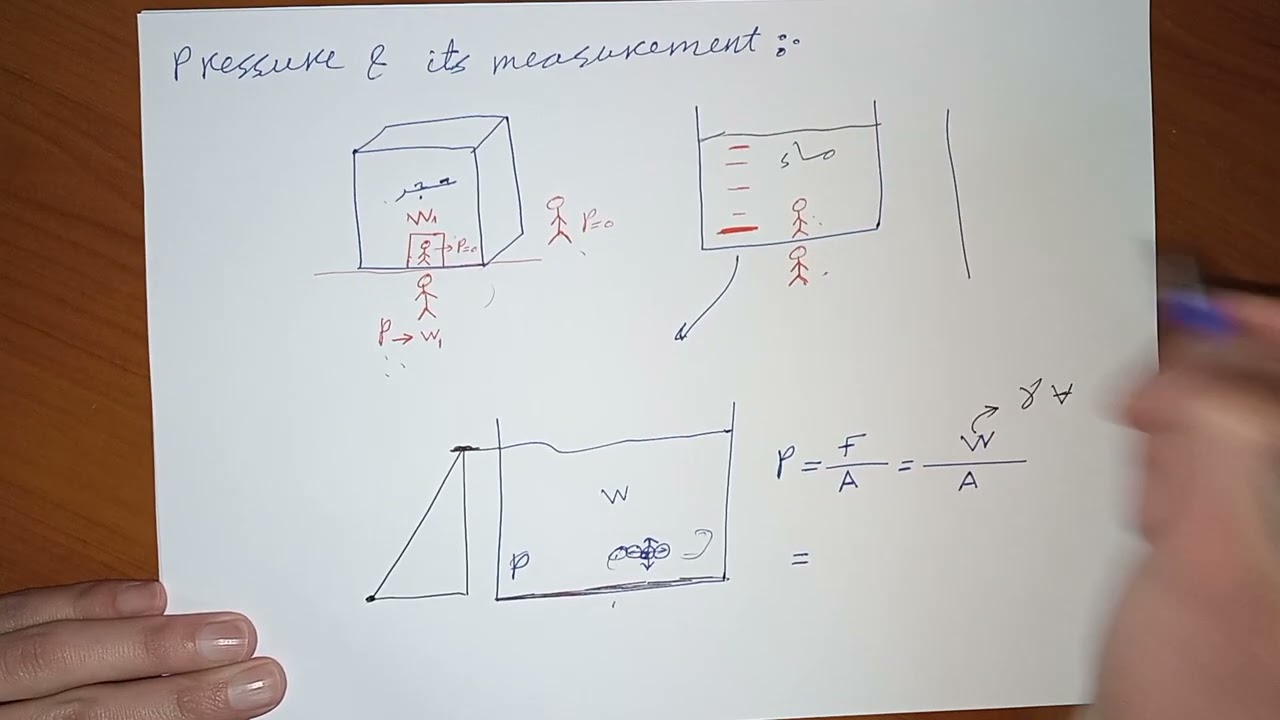 Pressure & its measurement :-
حجر
W₁
P=0
P=0
P → W₁
ماء
W
P
P = F/A = W/A
γ∀
=